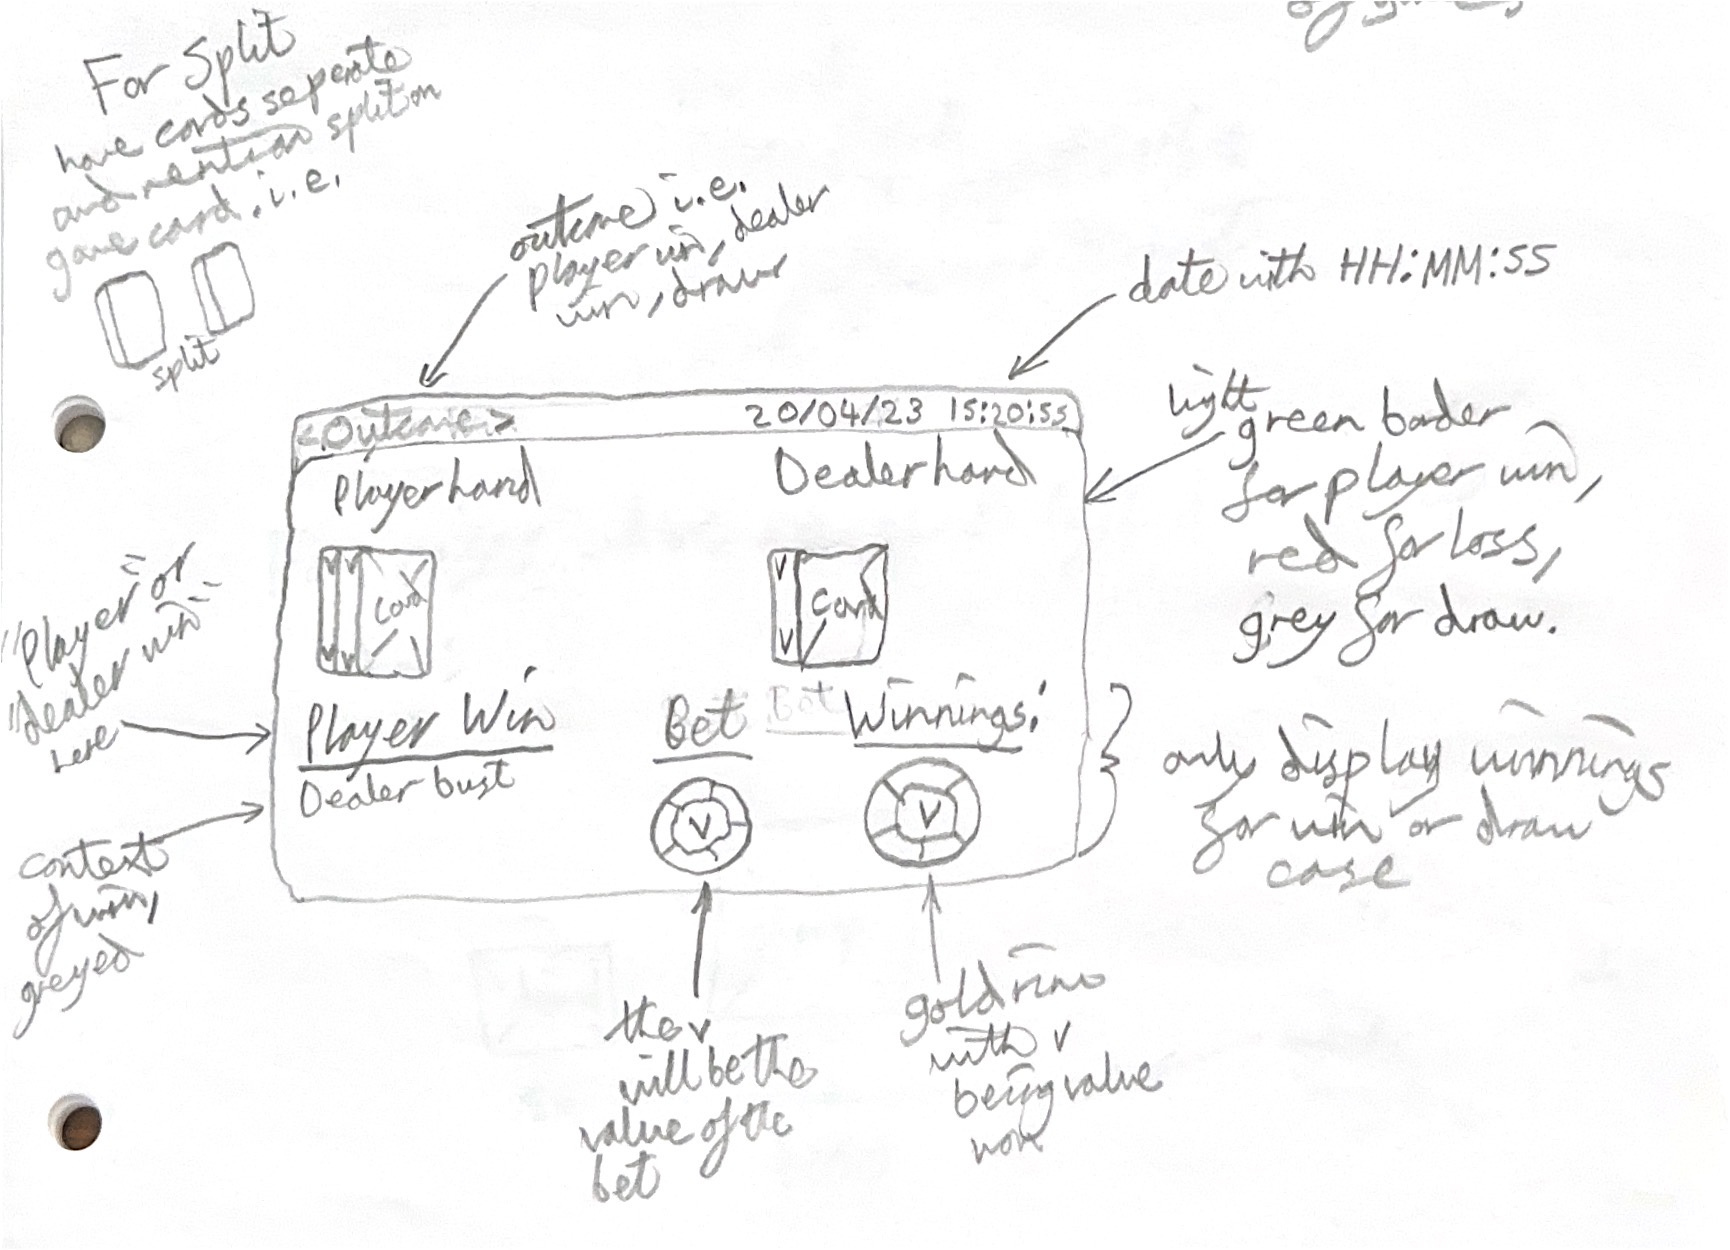 For Split
have cards seperate
and mention split on
game card. i.e.
split
outcome i.e.
player win, dealer
win, draw
date with HH:MM:SS
<Outcome>
20/04/23 15:20:55
light
green border
for player win,
red for loss,
grey for draw.
Player hand
Dealer hand
V V
Card
V
V V
V
Card
V
"Player" or
"dealer win"
here
Player Win
Dealer bust
Bet
Bet
Winnings:
V
V
only display winnings
for win or draw
case
context
of win,
greyed
the v
will be the
value of the
bet
gold rims
with v
being value
won